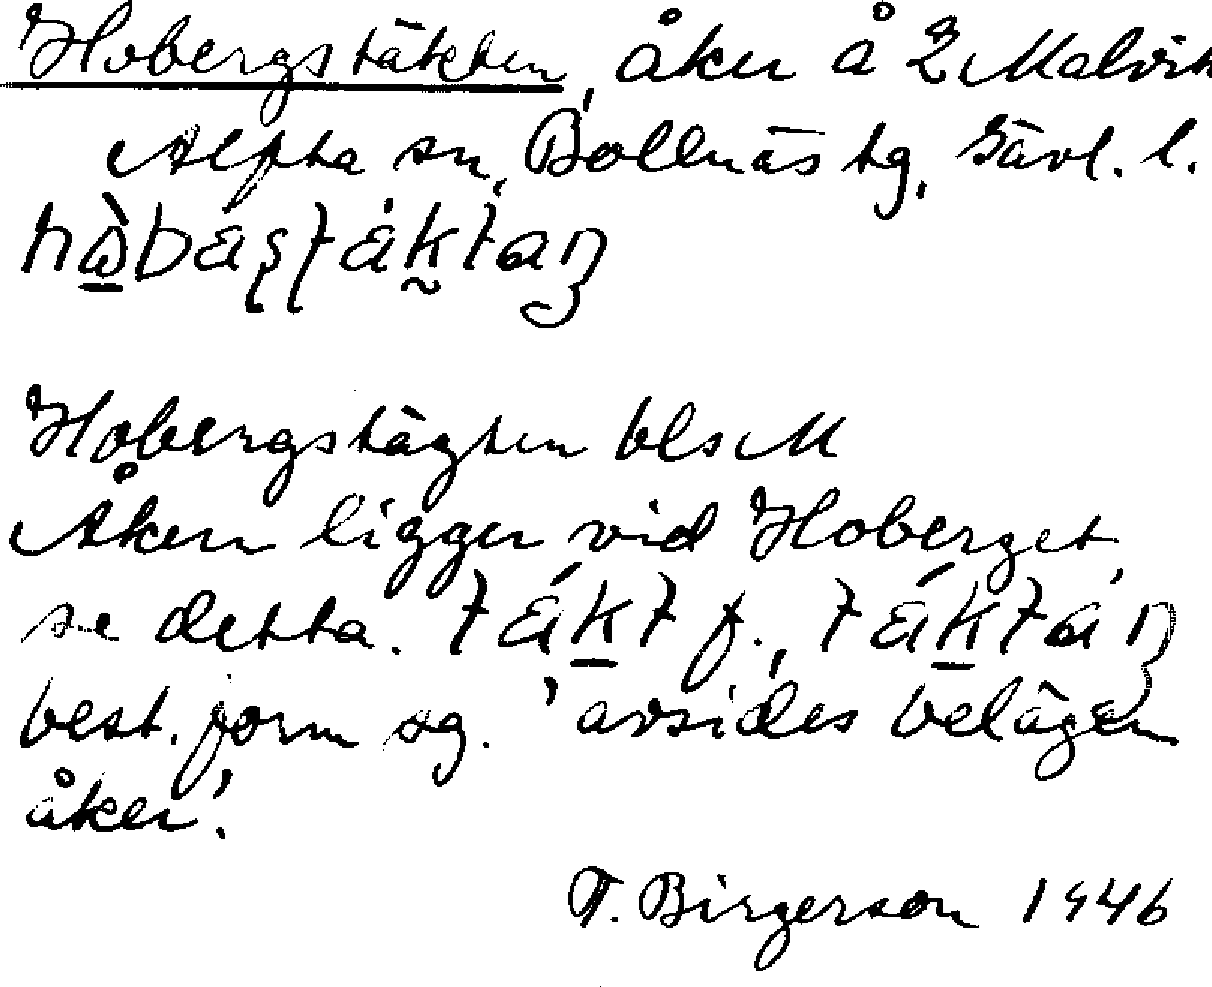 Hobergstäkten, åker å 2 Malvik
Alfta sn, Bollnäs tg, Gävl. l.
Hobergstägten bls M
Åkern ligger vid Hoberget,
se detta. täkt f., täktan
best. form sg. 'avsides belägen
åker'.
T. Birgerson 1946